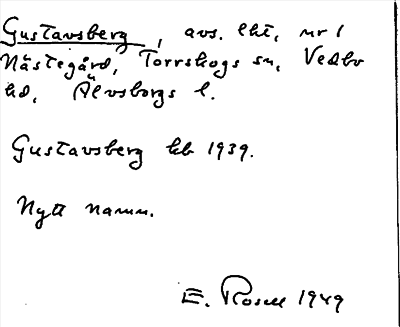 Gustavsberg, avs. lht, nr 1
Nästegård, Torrskogs sn, Vedbo
hd, Älvsborgs l.
Gustavsberg kb 1939.
Nytt namn.
E. Rosell 1949